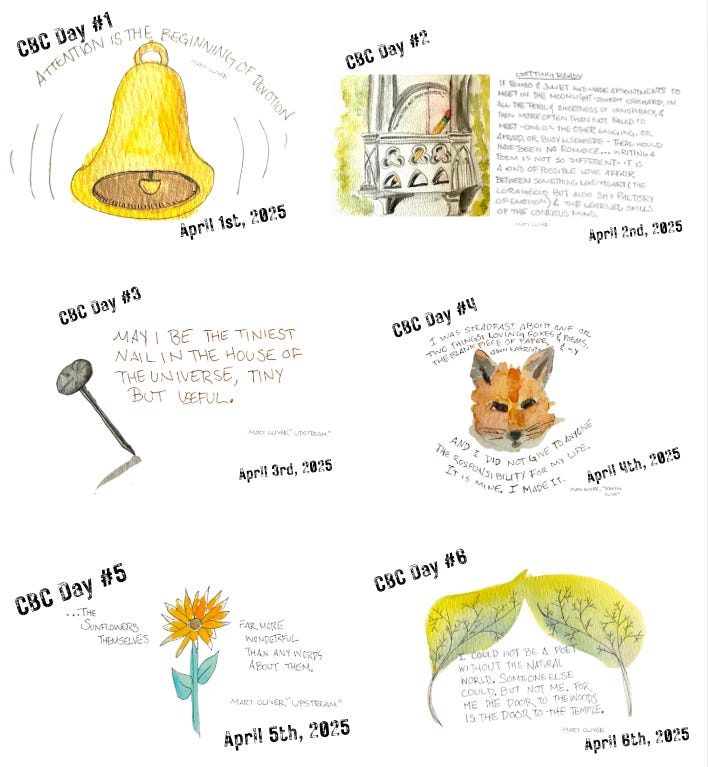 CBC Day #1
ATTENTION IS THE BEGINNING OF DEVOTION
MARY OLIVER
April 1st, 2025
CBC Day #2
GETTING READY
IF ROMEO & JULIET HAD MADE APPOINTMENTS TO
MEET IN THE MOONLIGHT-SWEPT ORCHARD, IN
ALL THE PERIL & SWEETNESS OF CONSPIRACY, &
THEN MORE OFTEN THAN NOT FAILED TO
MEET - ONE OR THE OTHER LAGGING, OR
AFRAID, OR BUSY ELSEWHERE - THERE WOULD
HAVE BEEN NO ROMANCE... WRITING A
POEM IS NOT SO DIFFERENT - IT IS
A KIND OF POSSIBLE LOVE AFFAIR
BETWEEN SOMETHING LIKE HEART (THE
CORAGEOUS BUT ALSO SHY FACTORY
OF EMOTION) & THE LEARNED SKILLS
OF THE CONSIOUS MIND.
MARY OLIVER
April 2nd, 2025
CBC Day #3
MAY I BE THE TINIEST
NAIL IN THE HOUSE OF
THE UNIVERSE, TINY
BUT USEFUL.
MARY OLIVER, "UPSTREAM"
April 3rd, 2025
CBC Day #4
I WAS STEADFAST ABOUT ONE OR
TWO THINGS: LOVING FOXES & POEMS,
THE BLANK PIECE OF PAPER, & MY
OWN ENERGY
AND I DID NOT GIVE TO ANYONE
THE RESPONSIBILITY FOR MY LIFE.
IT IS MINE. I MADE IT.
MARY OLIVER,
April 4th, 2025
CBC Day #5
...THE
SUNFLOWERS
THEMSELVES
FAR MORE
WONDERFUL
THAN ANY WORDS
ABOUT THEM.
MARY OLIVER, "UPSTREAM"
April 5th, 2025
CBC Day #6
I COULD NOT BE A POET
WITHOUT THE NATURAL
WORLD. SOMEONE ELSE
COULD. BUT NOT ME. FOR
ME THE DOOR TO THE WOODS
IS THE DOOR TO THE TEMPLE.
MARY OLIVER
April 6th, 2025